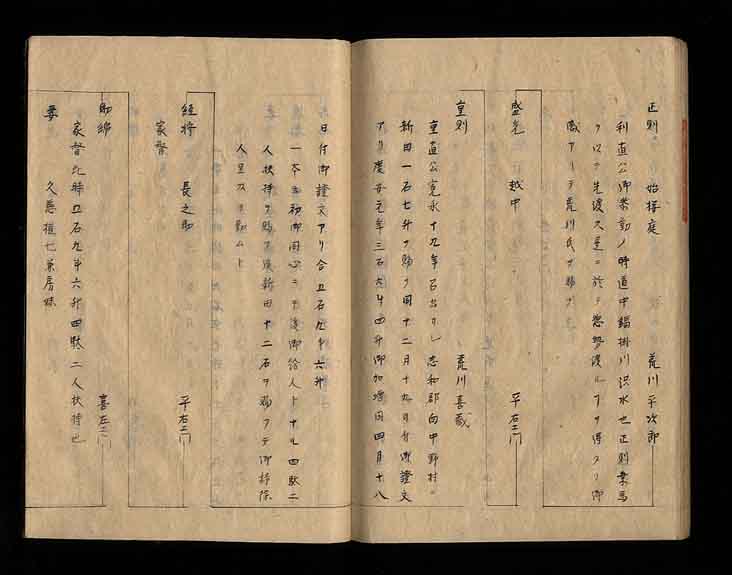 正則 始掃庭 荒川平次郎
利直公御参勤ノ時道中鍋掛川洪水也正則乗馬
ヲ以テ先渡久是ニ於テ惣勢渡ルヿヲ得タリ御
感アリテ荒川氏ヲ賜フ
盛光 越中 平右ヱ門
重則 荒川喜蔵
重直公寛永十九年召出サレ志和郡向中野村ニ
新田一石七升ヲ賜フ同十二月十九日付御證文
アリ慶安元年三石六斗四升御加増同四月十八
日付御證文アリ合五石九斗六升
一本ニ初御同心ニテ後御給人トナル四駄二
人扶持ヲ賜フ後新田十二石ヲ賜フテ御掃除
人呈ス等勤ムト
経将 長之助 平右ヱ門
家督
助綿 喜左ヱ門
家督九時五石九斗六升四駄二人扶持也
妻 久慈権七兼房妹